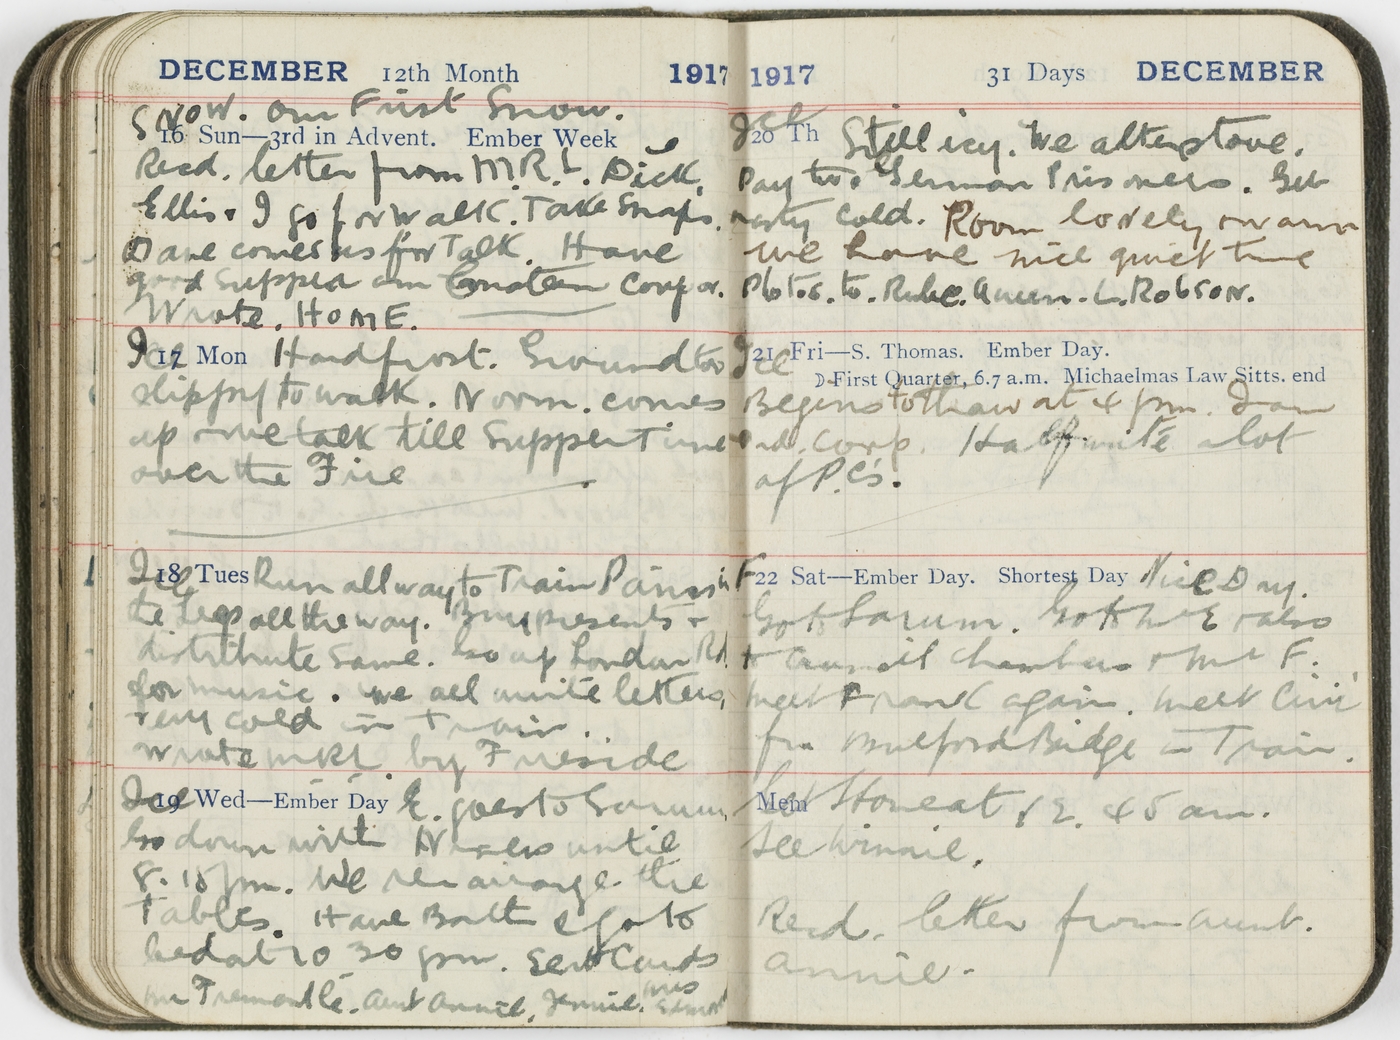 DECEMBER 12th Month 1917
Snow. our First Snow.
16 Sun—3rd in Advent. Ember Week
Recd. letter from M.R.L. Dick,
Ellis. I go for walk. Take Snaps.
Dave comes us for Talk. Have
good supper am Corpor.
Wrote. HOME.
Ice
17 Mon Hard frost. Ground too
slippy to walk. Norm. comes
up + we talk till Supper Time
over the Fire
Ice
18 Tues Run all way to Train Pains in
the legs all the way. Buy presents +
distribute same. Go up London Rd
for music. We all write letters,
very cold in Train.
Wrote MRL by Fireside
Ice
19 Wed—Ember Day E. goes to Sarum
Go down with until
8.15 pm. We re arrange the
Tables. Have Bath & go to
bed at 10 30 pm. Sent Cards
Mr Fremantle. Aunt Annie, Jennie. Mrs
1917 31 Days DECEMBER
Ice
20 Th Still icy. We alter stove.
Pay two German Prisoners. Get
nasty cold. Room lovely + warm
we have nice quiet time
Photos. to. Rube. L. Robson.
Ice
21 Fri—S. Thomas. Ember Day.
☽ First Quarter, 6.7 a.m. Michaelmas Law Sitts. end
Begins to thaw at 4 pm. I am
Ord. Corp. Half write a lot
of P.C's.
F
22 Sat—Ember Day. Shortest Day Nice Day.
Go to Sarum. Go to + also
to Council Chambers + Met F.
Meet Frank again. Meet
fm Milford Bridge in Train.
Mem Home at 12.45 am.
See Winnie.
Recd. letter from Aunt.
Annie.